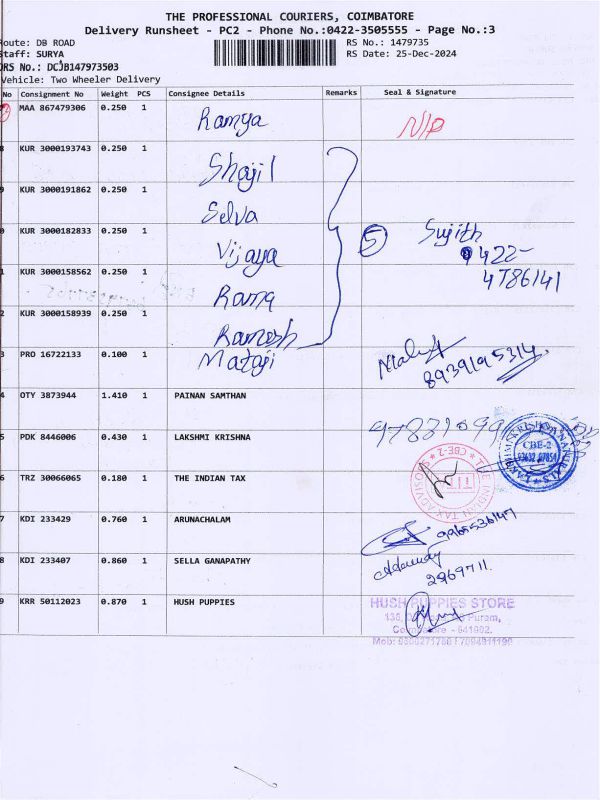 THE PROFESSIONAL COURIERS, COIMBATORE
Delivery Runsheet - PC2 - Phone No.:0422-3505555 - Page No.:3
oute: DB ROAD
RS No.: 1479735
taff: SURYA
RS Date: 25-Dec-2024
RS No.: DCJB147973503
Vehicle: Two Wheeler Delivery
No Consignment No Weight PCS Consignee Details Remarks Seal & Signature
MAA 867479306 0.250 1 Ramya N/P
8 KUR 3000193743 0.250 1 Shajil
9 KUR 3000191862 0.250 1 Selva
0 KUR 3000182833 0.250 1 Vijaya 5 Sujith
9422-
4786141
1 KUR 3000158562 0.250 1 Rama
2 KUR 3000158939 0.250 1 Ramesh
3 PRO 16722133 0.100 1 Mataji 8939195314
4 OTY 3873944 1.410 1 PAINAN SAMTHAN
5 PDK 8446006 0.430 1 LAKSHMI KRISHNA
CBE-2
6 TRZ 30066065 0.180 1 THE INDIAN TAX
THE INDIAN TAX ADVISORS
CBE-2
7 KDI 233429 0.760 1 ARUNACHALAM
8 KDI 233407 0.860 1 SELLA GANAPATHY
2969711
9 KRR 50112023 0.870 1 HUSH PUPPIES
HUSH PUPPIES STORE
Puram,